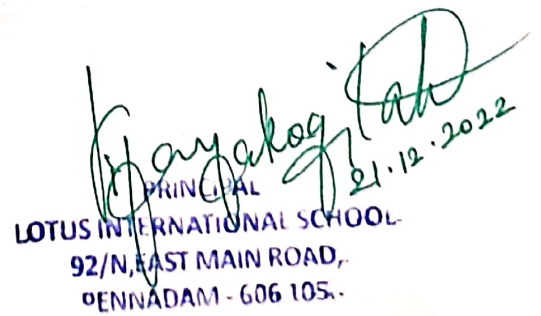 21.12.2022
PRINCIPAL
LOTUS INTERNATIONAL SCHOOL
92/N, EAST MAIN ROAD,
PENNADAM - 606 105.